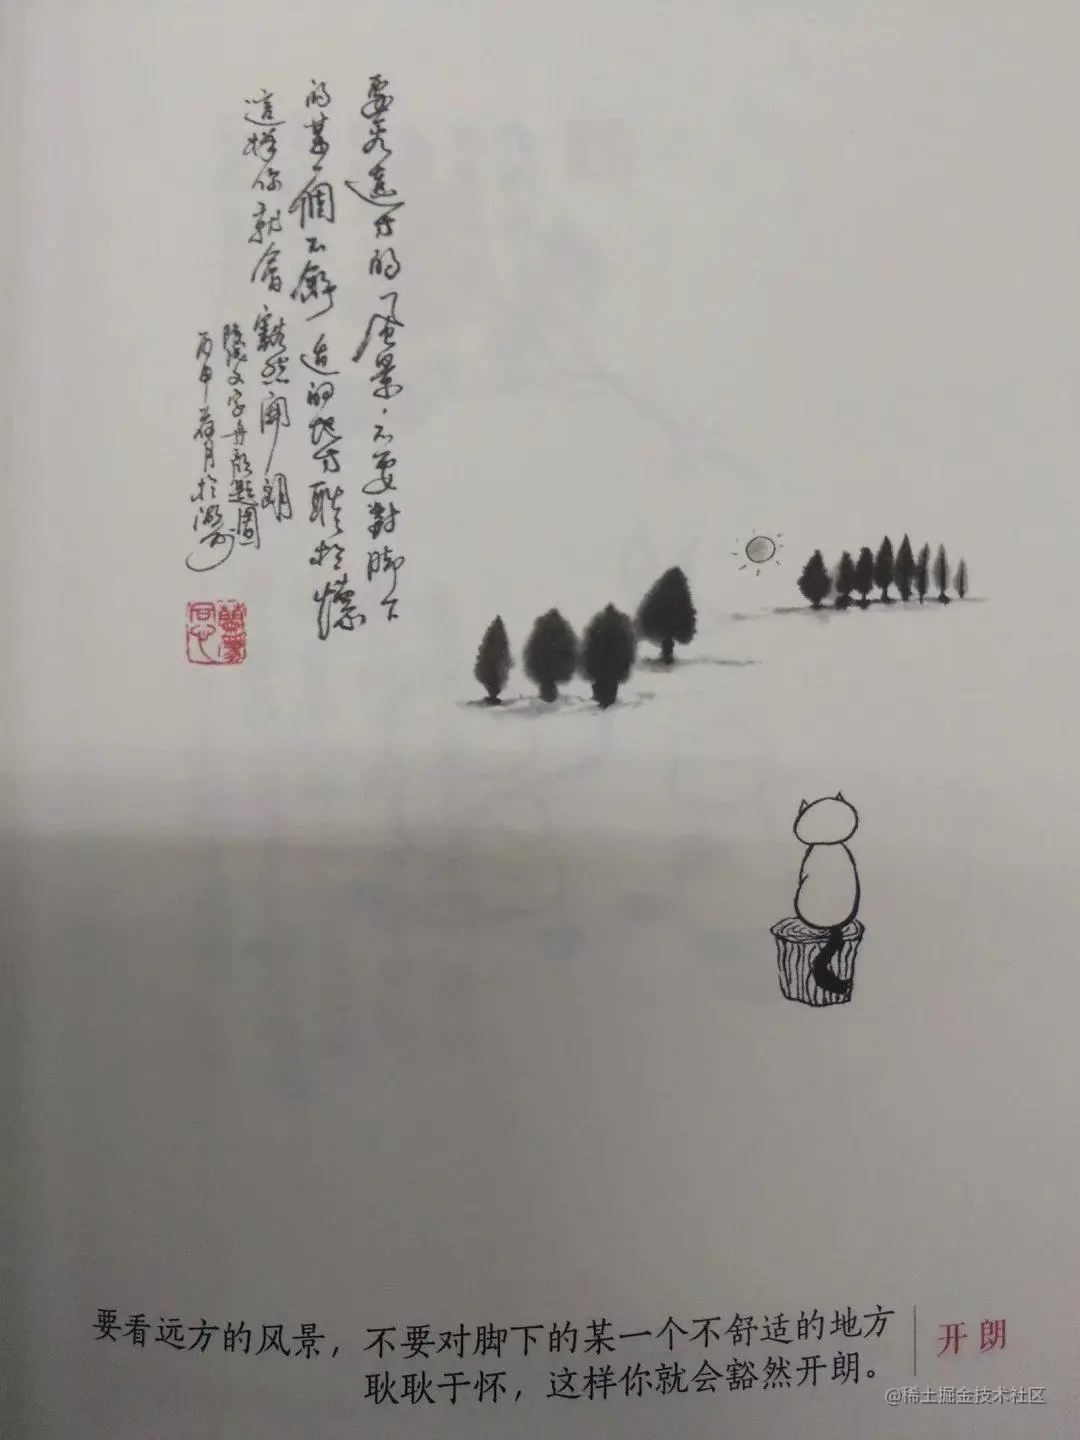 要看遠方的風景，不要對脚下
的某一個不舒適的地方耿耿於懷
這樣你就會豁然開朗
丙申荷月於
要看远方的风景，不要对脚下的某一个不舒适的地方
耿耿于怀，这样你就会豁然开朗。
开朗
@稀土掘金技术社区